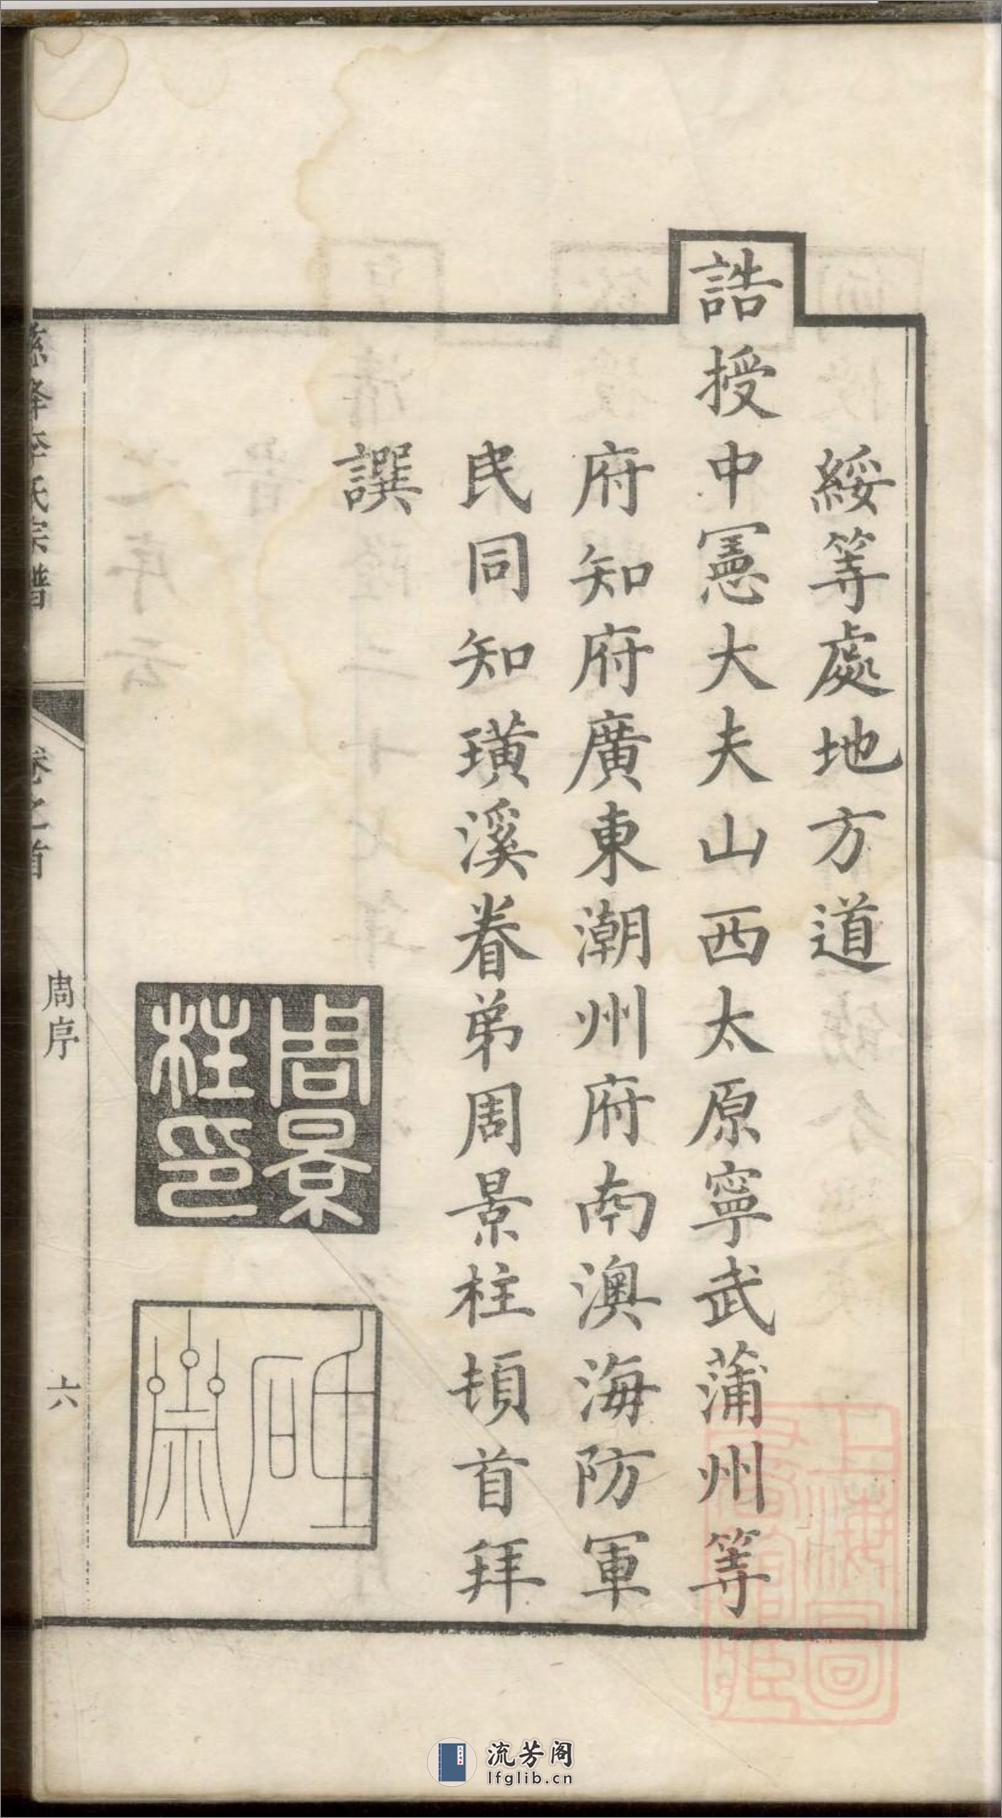 綏等處地方道
誥授中憲大夫山西太原寧武蒲州等
府知府廣東潮州府南澳海防軍
民同知璜溪眷弟周景柱頓首拜
譔
周景柱印
李氏宗譜
卷之首
周序
六
上海圖書館藏
流芳阁
lfglib.cn